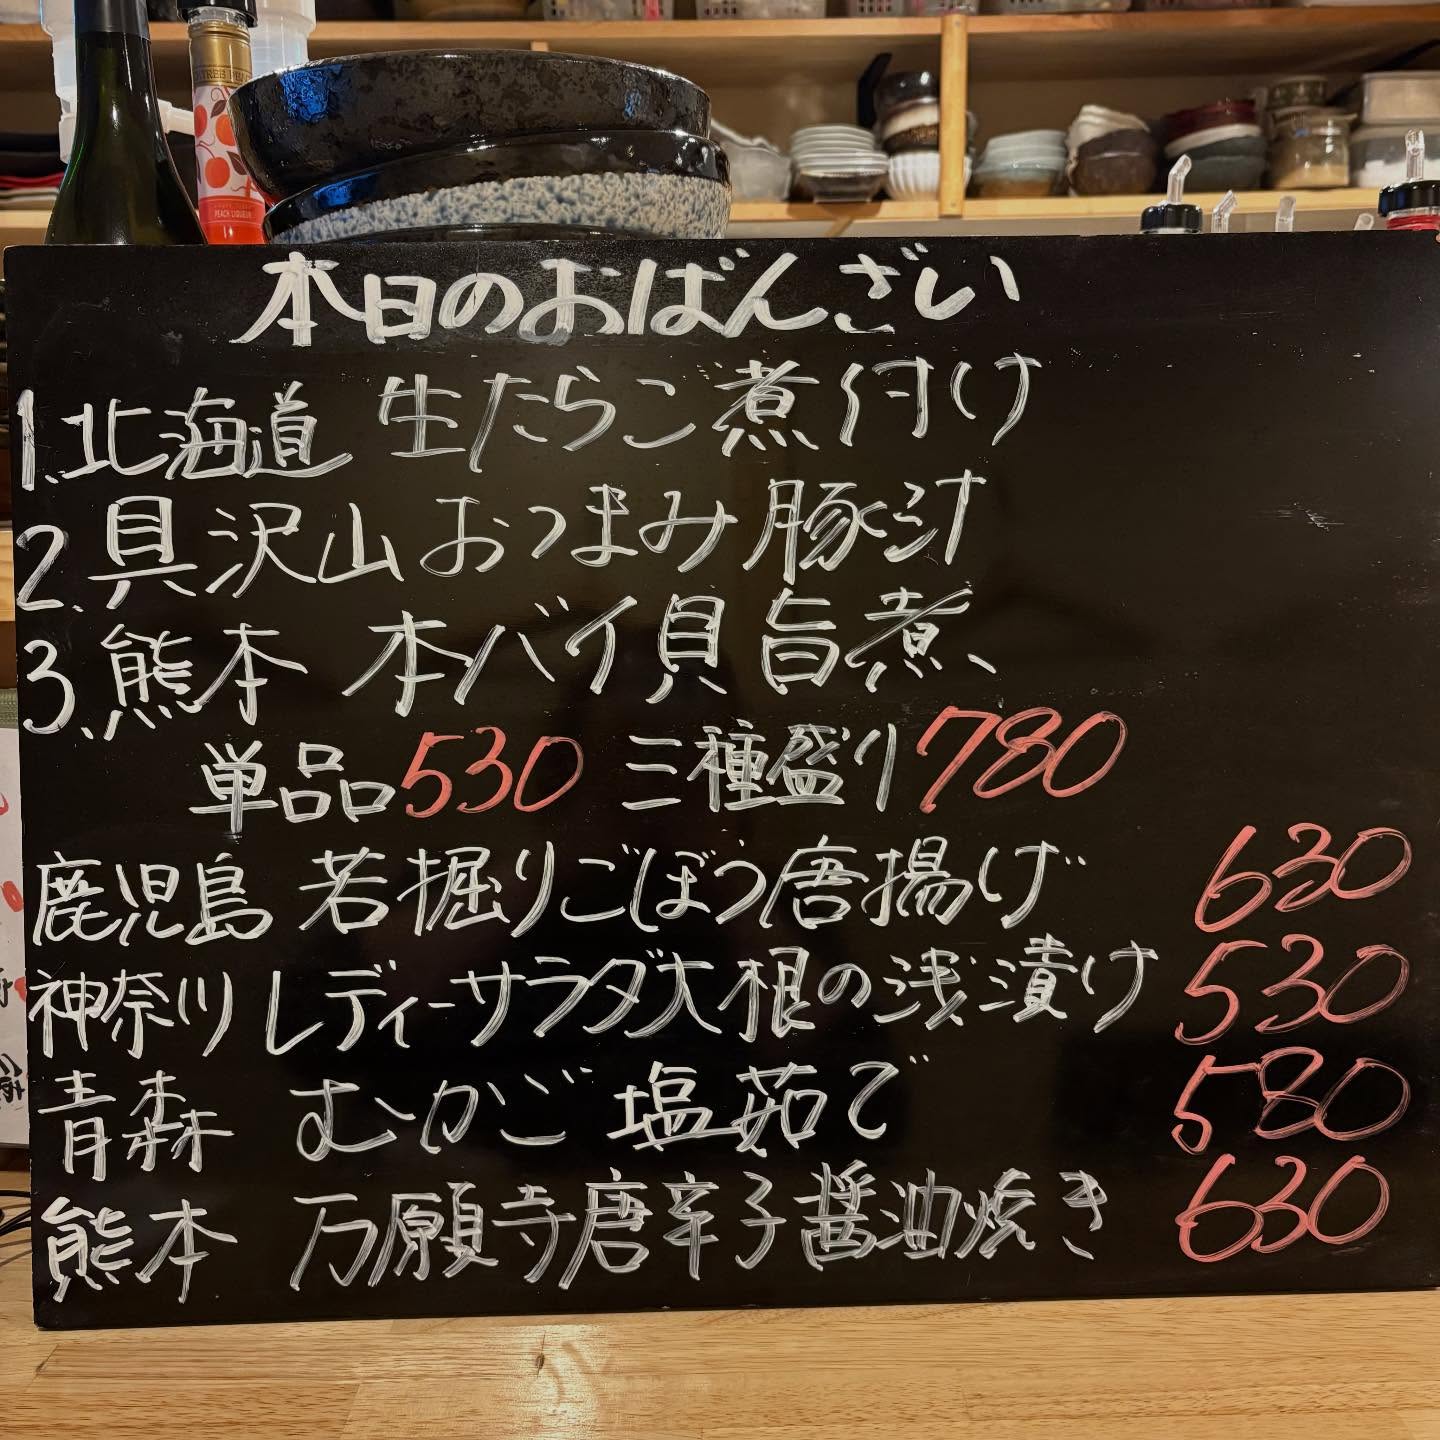 PEACH LIQUEUR
本日のおばんざい
1.北海道 生たらこ煮付け
2.具沢山おつまみ豚汁
3.熊本 本バイ貝旨煮
単品530 三種盛り780
鹿児島 若掘りごぼう唐揚げ 630
神奈川 レディーサラダ大根の浅漬け 530
青森 むかご塩茹で 580
熊本 万願寺唐辛子醤油焼き 630